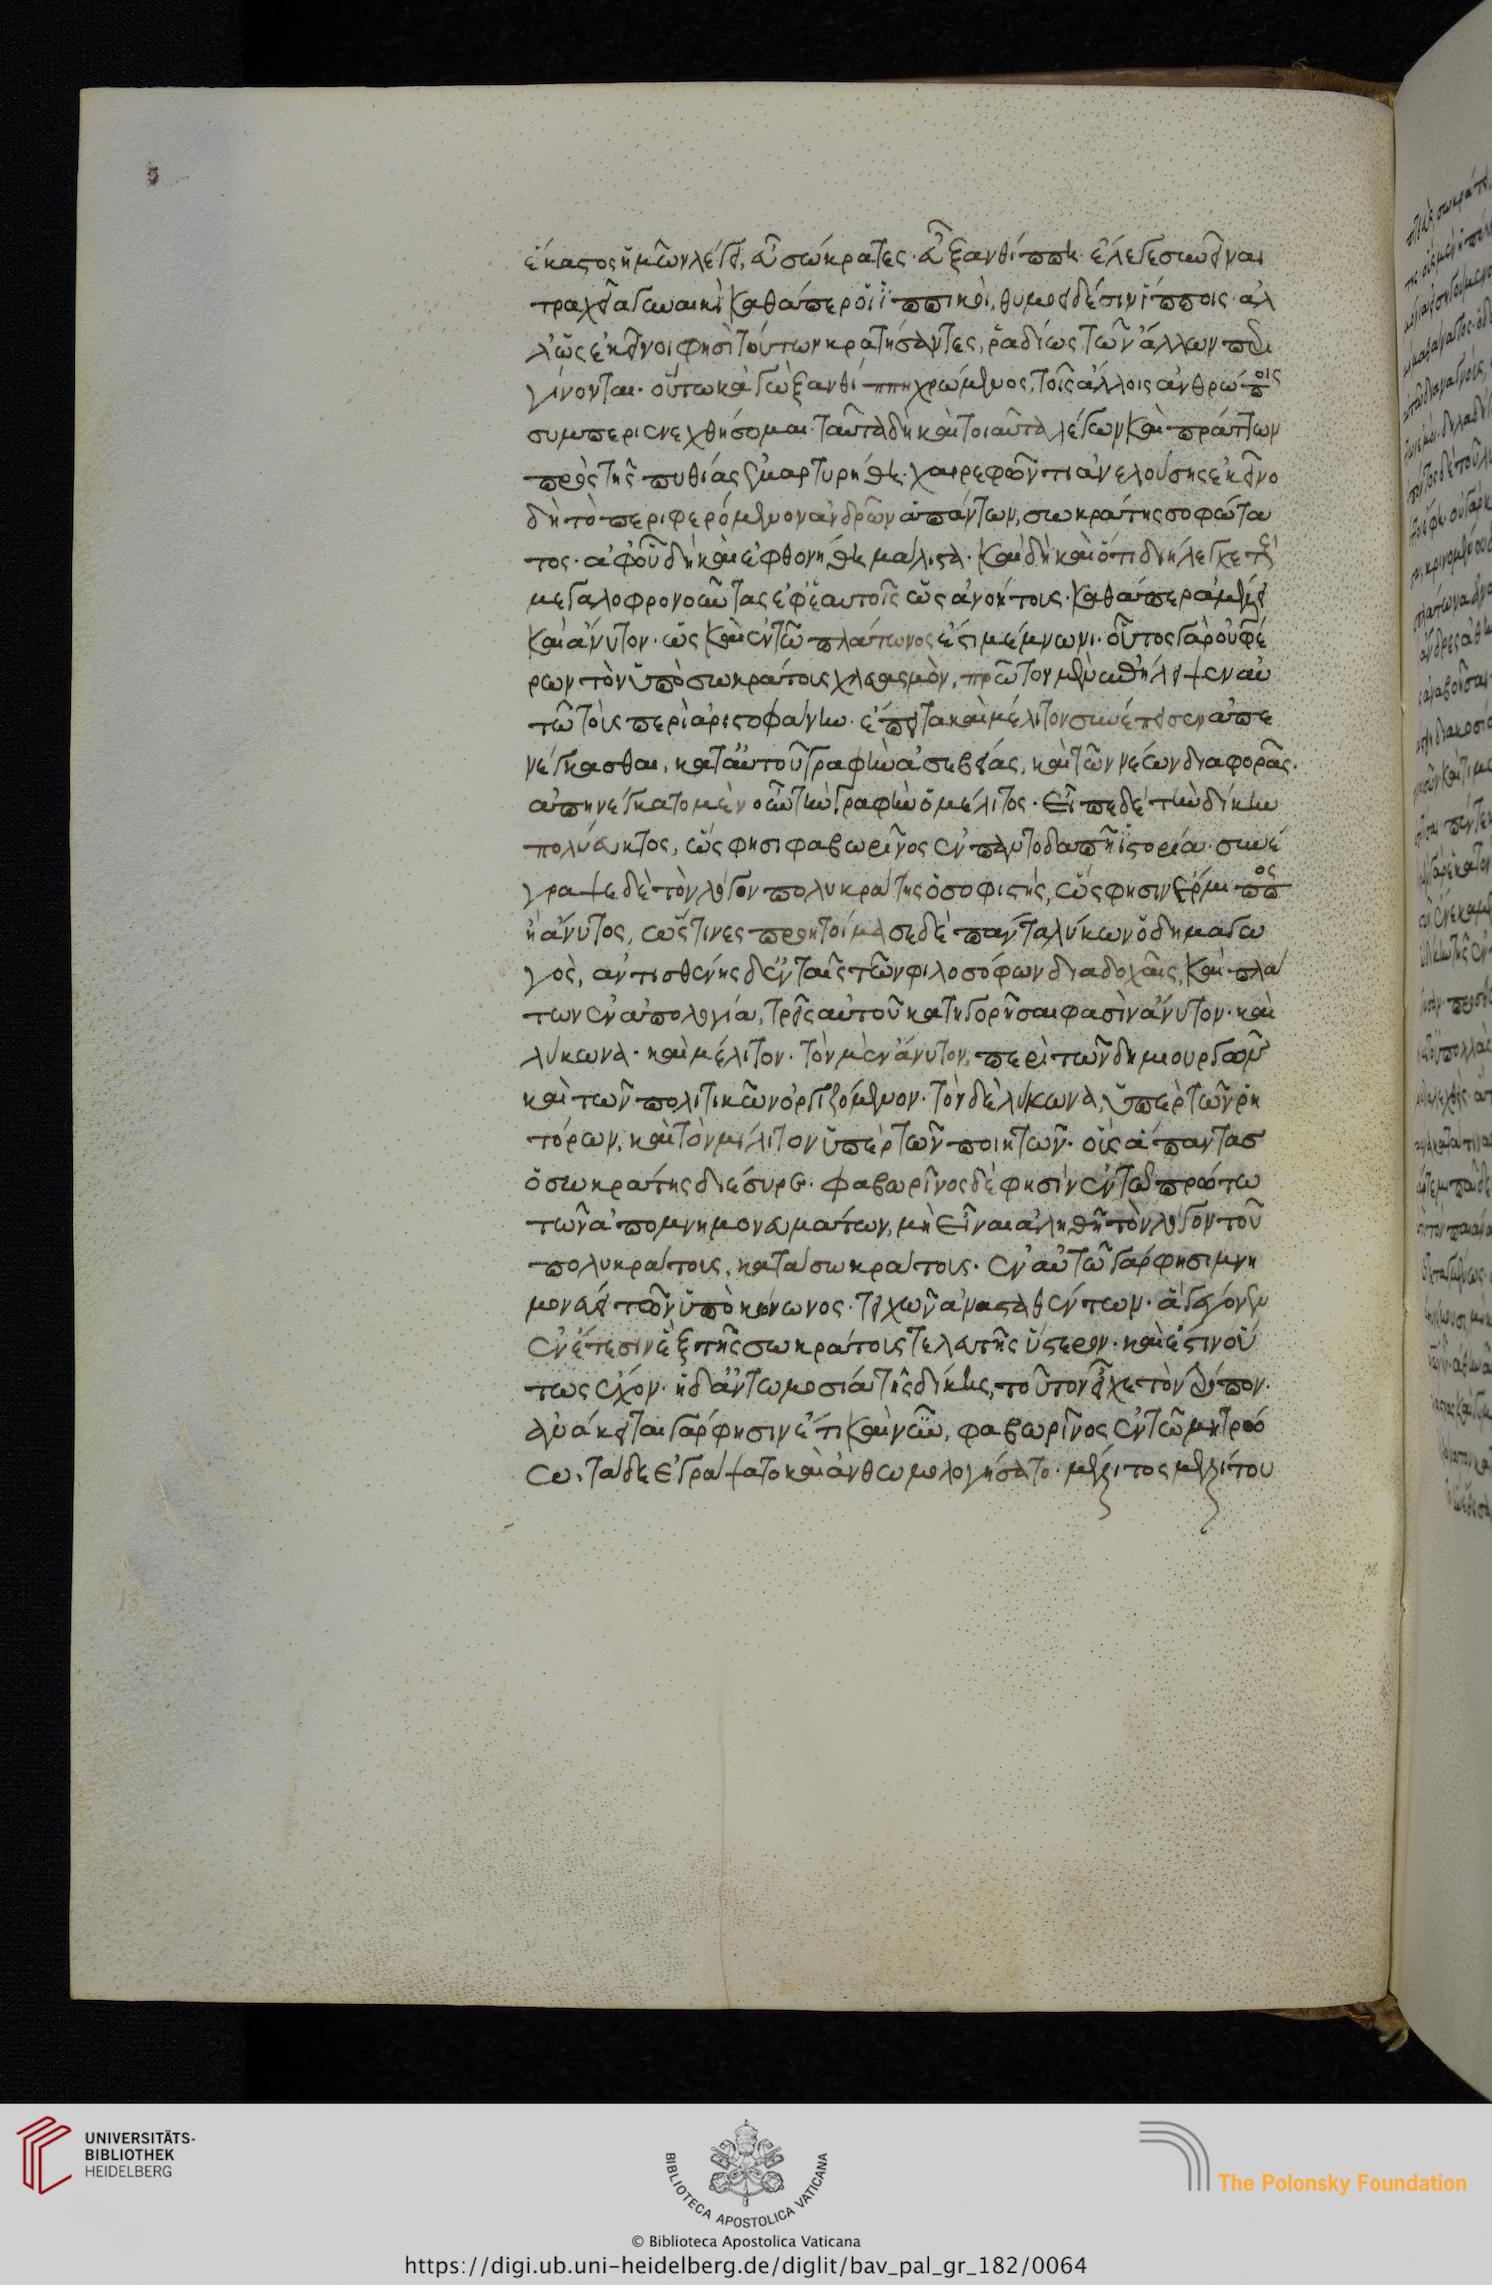 ἕκαστος ἡμῶν λέγει, εὖ σώκρατες. εὖ ξανθίππη. ἔλεγε συνεῖναι
τραχεία γυναικὶ καθάπερ οἵ ἱππικοὶ, θυμοειδέσιν ἵπποις. ἀλ
λ' ὡς ἐκεῖνοι φησὶ τούτων κρατήσαντες, ῥαδίως τῶν ἄλλων περι
γίνονται. οὕτω κἀγὼ ξανθίππη χρώμενος, τοῖς ἄλλοις ἀνθρώποις
συμπερισνεχθήσομαι. ταῦτα δὴ καὶ τοιαῦτα λέγων καὶ πράττων
πρὸς τῆς πυθίας ἐμαρτυρήθη. χαιρεφῶντι ἀνελούσης ἐκεῖνο
δὴ τὸ περιφερόμενον ἀνδρῶν ἁπάντων, σωκράτης σοφώτα
τος. ἀφ' οὗ δὴ καὶ ἐφθονήθη μάλιστα. καὶ δὴ καὶ ὅτι διήλεγχε τοὺς
μεγαλοφρονοῦντας ἐφ' ἑαυτοῖς ὡς ἀνοήτους. καθάπερ ἀμέλει
καὶ ἄνυτον. ὡς καὶ ἐν τῶ πλάτωνος ἐστὶ μέμνωνι. οὗτος γὰρ οὐ φέ
ρων τὸν ὑπὸ σωκράτους χλευασμὸν, πρῶτον μὲν ἐπήλειψεν αὐ
τῶ τοὺς περὶ ἀριστοφάνην. ἔπειτα καὶ μέλιτον συνέπεισεν ἀπε
νέγκασθαι, κατ' αὐτοῦ γραφὴν ἀσεβείας, καὶ τῶν νέων διαφορᾶς.
ἀπηνέγκατο μὲν οὖν τὴν γραφὴν ὁ μέλιτος. εἶπε δὲ τὴν δίκην
πολύευκτος, ὥς φησι φαβωρῖνος ἐν παντοδαπῆ ἱστορία. συνέ
γραψε δὲ τὸν λόγον πολυκράτης ὁ σοφιστής, ὥς φησιν ἕρμιππος
ἢ ἄνυτος, ὥς τινες προητοίμασε δὲ πάντα λύκων ὁ δημαγω
γὸς, ἀντισθένης δ' ἐν ταῖς τῶν φιλοσόφων διαδοχαῖς, καὶ πλά
των ἐν ἀπολογία, τρεῖς αὐτοῦ κατηγορῆσαι φασὶν ἄνυτον. καὶ
λύκωνα. καὶ μέλιτον. τὸν μὲν ἄνυτον, περὶ τῶν δημιουργῶν
καὶ τῶν πολιτικῶν ὀργιζόμενον. τὸν δὲ λύκωνα, ὑπὲρ τῶν ῥη
τόρων, καὶ τὸν μέλιτον ὑπὲρ τῶν ποιητῶν. οἷς ἅπαντας
ὁ σωκράτης διέσυρε. φαβωρῖνος δέ φησιν ἐν τῶ πρώτω
τῶν ἀπομνημονευμάτων, μὴ εἶναι ἀληθῆ τὸν λόγον τοῦ
πολυκράτους, κατὰ σωκράτους. ἐν αὐτῶ γάρ φησι μνη
μονεύει τῶν ὑπὸ κόνωνος. τειχῶν ἀνασταθέντων. ἃ γέγονεν
ἐν ἔτεσιν ἓξ τῆς σωκράτους τελευτῆς ὕστερον. καὶ ἔστιν οὕ
τως ἔχον. ἡ δ' ἀντωμοσία τῆς δίκης, τοῦτον εἶχε τὸν τρόπον.
ἀνάκειται γάρ φησιν ἔτι καὶ νῦν, φαβωρῖνος ἐν τῶ μητρώ
ω. τάδε ἐγράψατο καὶ ἀνθωμολογήσατο. μέλιτος μελίτου
UNIVERSITÄTS-
BIBLIOTHEK
HEIDELBERG
BIBLIOTECA APOSTOLICA VATICANA
The Polonsky Foundation
© Biblioteca Apostolica Vaticana
https://digi.ub.uni-heidelberg.de/diglit/bav_pal_gr_182/0064